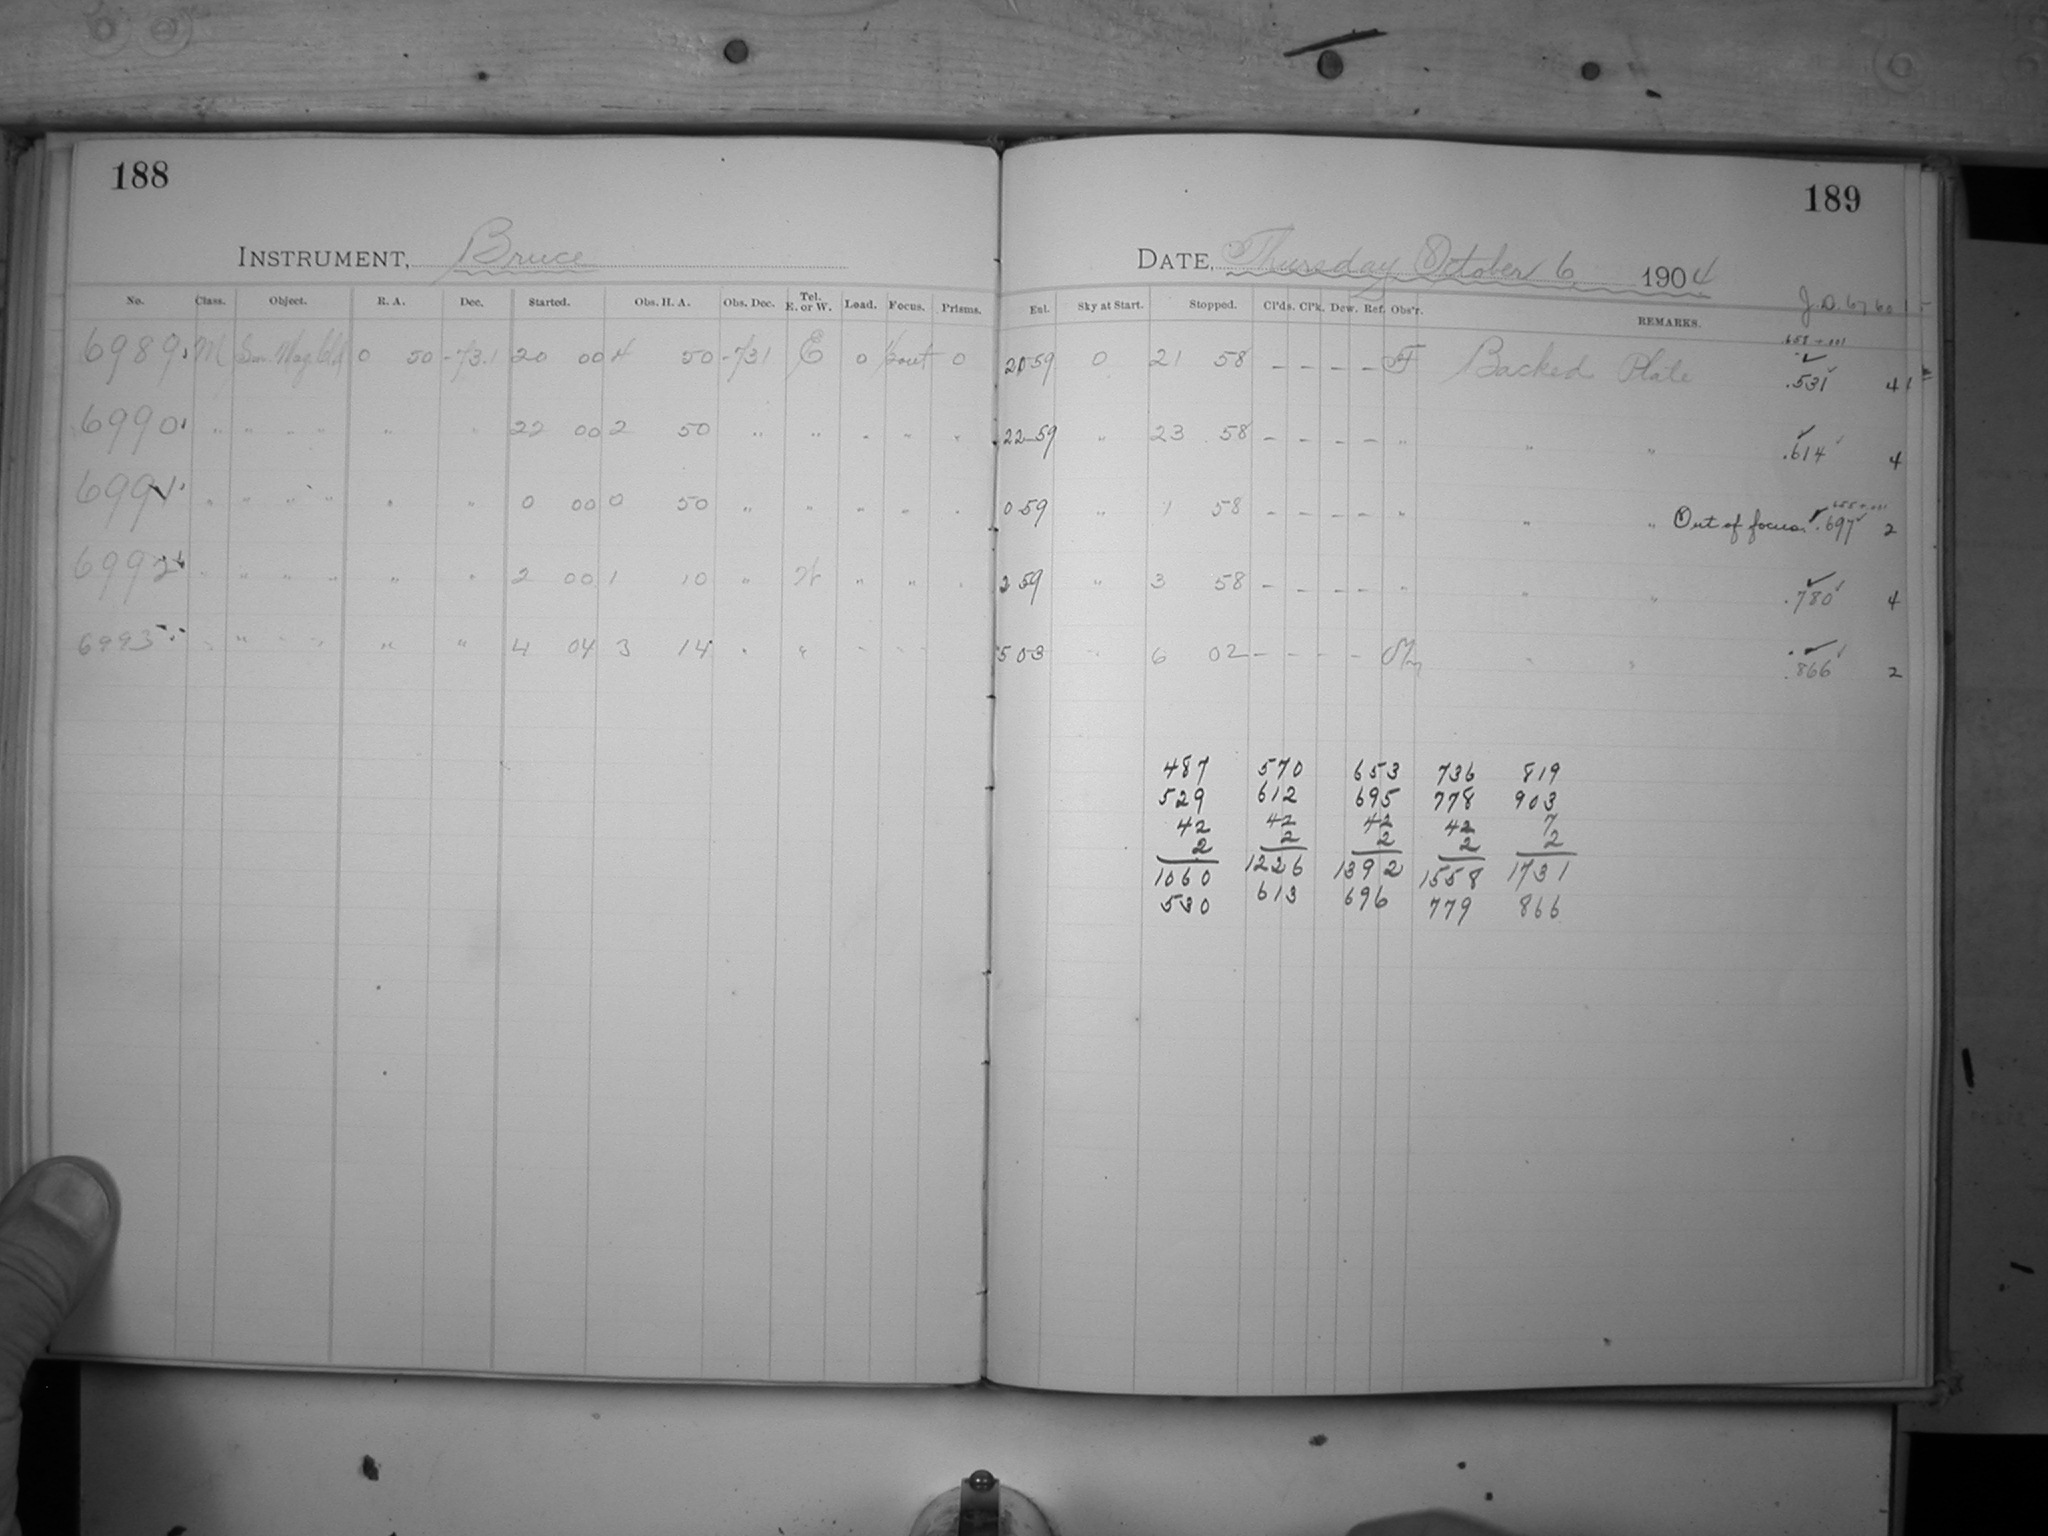 188
INSTRUMENT, Bruce
No. Class. Object. R. A. Dec. Started. Obs. H. A. Obs. Dec. Tel. E. or W. Load. Focus. Prisms.
6989 M Sm. Mag. Cld 0 50 -73.1 20 00 4 50 -731 E 0 out 0
6990 " " " " " " 22 00 2 50 " " " " "
6991 " " " " " " 0 00 0 50 " " " " "
6992 " " " " " " 2 00 1 10 " W " " "
6993 " " " " " " 4 04 3 14 " " " " "
189
DATE, Thursday October 6 1904
Exl. Sky at Start. Stopped. Cl'ds. Cl'k. Dew. Ref. Obs'r. REMARKS.
J.D.
2059 0 21 58 – – – – F Backed Plate .531 4
2259 " 23 58 – – – – " " " .614 4
059 " 1 58 – – – – " " " Out of focus .697 2
259 " 3 58 – – – – " " " .780 4
503 " 6 02 – – – – " " .866 2
487 570 653 736 819
529 612 695 778 903
42 42 42 42 7
2 2 2 2 2
1060 1226 1392 1558 1731
530 613 696 779 866